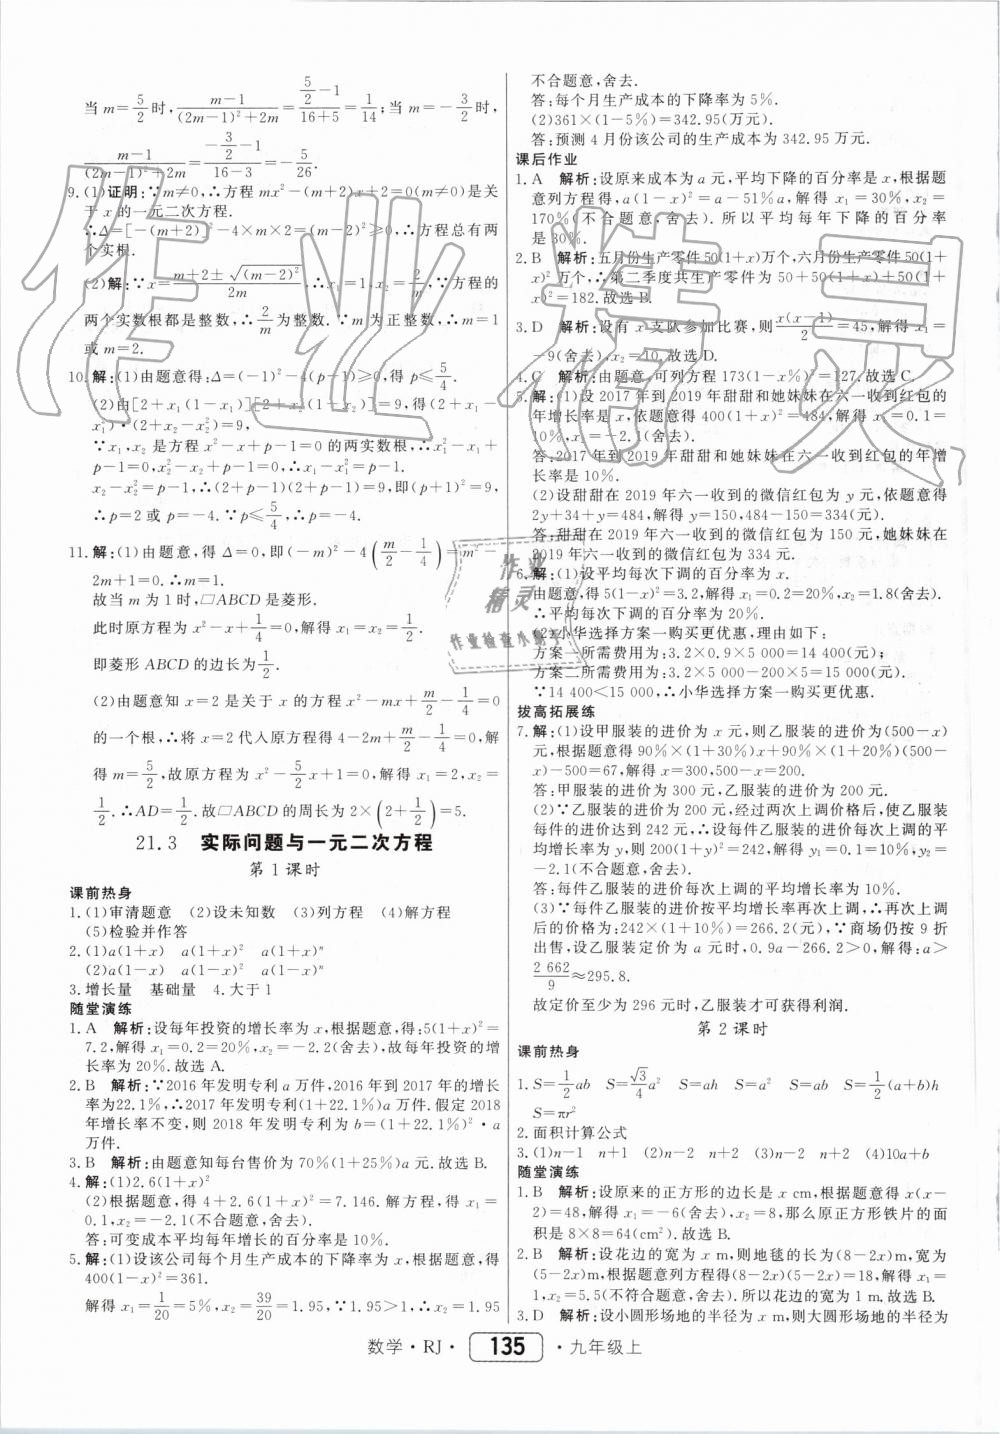 当m=5/2时,(m-1)/((2m-1)²+2m)=(5/2-1)/(16+5)=1/14;当m=-3/2时,
(m-1)/((2m-1)²+2m)=(-3/2-1)/(16-3)=-5/26.
9.(1)证明:∵m≠0,∴方程mx²-(m+2)x+2=0(m≠0)是关
于x的一元二次方程.
∴Δ=[-(m+2)]²-4×m×2=(m-2)²≥0,∴方程总有两
个实根.
(2)解:∵x=(m+2±√(m-2)²)/2m,∴x₁=1,x₂=2/m.∵方程的
两个实数根都是整数,∴2/m为整数.∵m为正整数,∴m=1
或m=2.
10.解:(1)由题意得:Δ=(-1)²-4(p-1)≥0,得p≤5/4.
(2)由[2+x₁(1-x₁)][2+x₂(1-x₂)]=9,得(2+x₁-
x₁²)·(2+x₂-x₂²)=9,
∵x₁,x₂是方程x²-x+p-1=0的两实数根,∴x₁²-x₁+
p-1=0,x₂²-x₂+p-1=0,∴x₁-x₁²=p-1.
x₂-x₂²=p-1,∴(2+p-1)(2+p-1)=9,即(p+1)²=9,
∴p=2或p=-4.∵p≤5/4,∴p=-4.
11.解:(1)由题意,得Δ=0,即(-m)²-4(m/2-1/4)=m²-
2m+1=0.∴m=1.
故当m为1时,□ABCD是菱形.
此时原方程为x²-x+1/4=0,解得x₁=x₂=1/2.
即菱形ABCD的边长为1/2.
(2)由题意知x=2是关于x的方程x²-mx+m/2-1/4=0
的一个根,∴将x=2代入原方程得4-2m+m/2-1/4=0,解
得m=5/2,故原方程为x²-5/2x+1=0,解得x₁=2,x₂=
1/2.∴AD=1/2.故□ABCD的周长为2×(2+1/2)=5.
21.3 实际问题与一元二次方程
第1课时
课前热身
1.(1)审清题意 (2)设未知数 (3)列方程 (4)解方程
(5)检验并作答
2.(1)a(1+x) a(1+x)² a(1+x)ⁿ
(2)a(1-x) a(1-x)² a(1-x)ⁿ
3.增长量 基础量 4.大于1
随堂演练
1.A 解析:设每年投资的增长率为x,根据题意,得:5(1+x)²=
7.2,解得x₁=0.2=20%,x₂=-2.2(舍去),故每年投资的增
长率为20%.故选A.
2.B 解析:∵2016年发明专利a万件,2016年到2017年的增长
率为22.1%,∴2017年发明专利(1+22.1%)a万件.假定2018
年增长率不变,则2018年发明专利为b=(1+22.1%)²·a
万件.
3.B 解析:由题意知每台售价为70%(1+25%)a元.故选B.
4.解:(1)2.6(1+x)²
(2)根据题意,得4+2.6(1+x)²=7.146.解方程,得x₁=
0.1,x₂=-2.1(不合题意,舍去).
答:可变成本平均每年增长的百分率是10%.
5.解:(1)设该公司每个月生产成本的下降率为x,根据题意,得
400(1-x)²=361.
解得x₁=1/20=5%,x₂=39/20=1.95,∵1.95>1,∴x₂=1.95
不合题意,舍去.
答:每个月生产成本的下降率为5%.
(2)361×(1-5%)=342.95(万元).
答:预测4月份该公司的生产成本为342.95万元.
课后作业
1.A 解析:设原来成本为a元,平均下降的百分率是x,根据题
意列方程得,a(1-x)²=a-51%a,解得x₁=30%,x₂=
170%(不合题意,舍去).所以平均每年下降的百分率
是30%.
2.B 解析:五月份生产零件50(1+x)万个,六月份生产零件50(1+
x)²万个,∴第二季度共生产零件为50+50(1+x)+50(1+
x)²=182.故选B.
3.D 解析:设有x支队参加比赛,则x(x-1)/2=45,解得x₁=
-9(舍去),x₂=10.故选D.
4.C 解析:由题意,可列方程173(1-x%)²=127.故选C.
5.解:(1)设2017年到2019年甜甜和她妹妹在六一收到红包的
年增长率是x,依题意得400(1+x)²=484,解得x₁=0.1=
10%,x₂=-2.1(舍去).
答:2017年到2019年甜甜和她妹妹在六一收到红包的年增
长率是10%.
(2)设甜甜在2019年六一收到的微信红包为y元,依题意得
2y+34+y=484,解得y=150,484-150=334(元).
答:甜甜在2019年六一收到的微信红包为150元,她妹妹在
2019年六一收到的微信红包为334元.
6.解:(1)设平均每次下调的百分率为x.
由题意,得5(1-x)²=3.2,解得x₁=0.2=20%,x₂=1.8(舍去).
∴平均每次下调的百分率为20%.
(2)小华选择方案一购买更优惠,理由如下:
方案一所需费用为:3.2×0.9×5 000=14 400(元);
方案二所需费用为:3.2×5 000-200×5=15 000(元).
∵14 400<15 000,∴小华选择方案一购买更优惠.
拔高拓展练
7.解:(1)设甲服装的进价为x元,则乙服装的进价为(500-x)
元,根据题意得90%×(1+30%)x+90%×(1+20%)(500-
x)-500=67,解得x=300,500-x=200.
答:甲服装的进价为300元,乙服装的进价为200元.
(2)∵乙服装的进价为200元,经过两次上调价格后,使乙服装
每件的进价达到242元,∴设每件乙服装进价每次上调的平
均增长率为y,则200(1+y)²=242,解得y₁=0.1=10%,y₂=
-2.1(不合题意,舍去).
答:每件乙服装的进价每次上调的平均增长率为10%.
(3)∵每件乙服装的进价按平均增长率再次上调,∴再次上调
后的价格为:242×(1+10%)=266.2(元),∵商场仍按9折
出售,设乙服装定价为a元时,0.9a-266.2>0,解得:a>
2 662/9≈295.8.
故定价至少为296元时,乙服装才可获得利润.
第2课时
课前热身
1.S=1/2ab S=√3/4a² S=ah S=a² S=ab S=1/2(a+b)h
S=πr²
2.面积计算公式
3.(1)n-1 n+1 (2)n-2 n+2 (3)n-2 n+2 (4)10a+b
随堂演练
1.B 解析:设原来的正方形的边长是x cm,根据题意得x(x-
2)=48,解得x₁=-6(舍去),x₂=8,那么原正方形铁片的面
积是8×8=64(cm²).故选B.
2.B 解析:设花边的宽为x m,则地毯的长为(8-2x)m,宽为
(5-2x)m,根据题意列方程得(8-2x)(5-2x)=18,解得x₁=
1,x₂=5.5(不符合题意,舍去).所以花边的宽为1 m.故选B.
3.D 解析:设小圆形场地的半径为x m,则大圆形场地的半径为
数学·RJ· 135 ·九年级上
作业精灵
作业
精灵